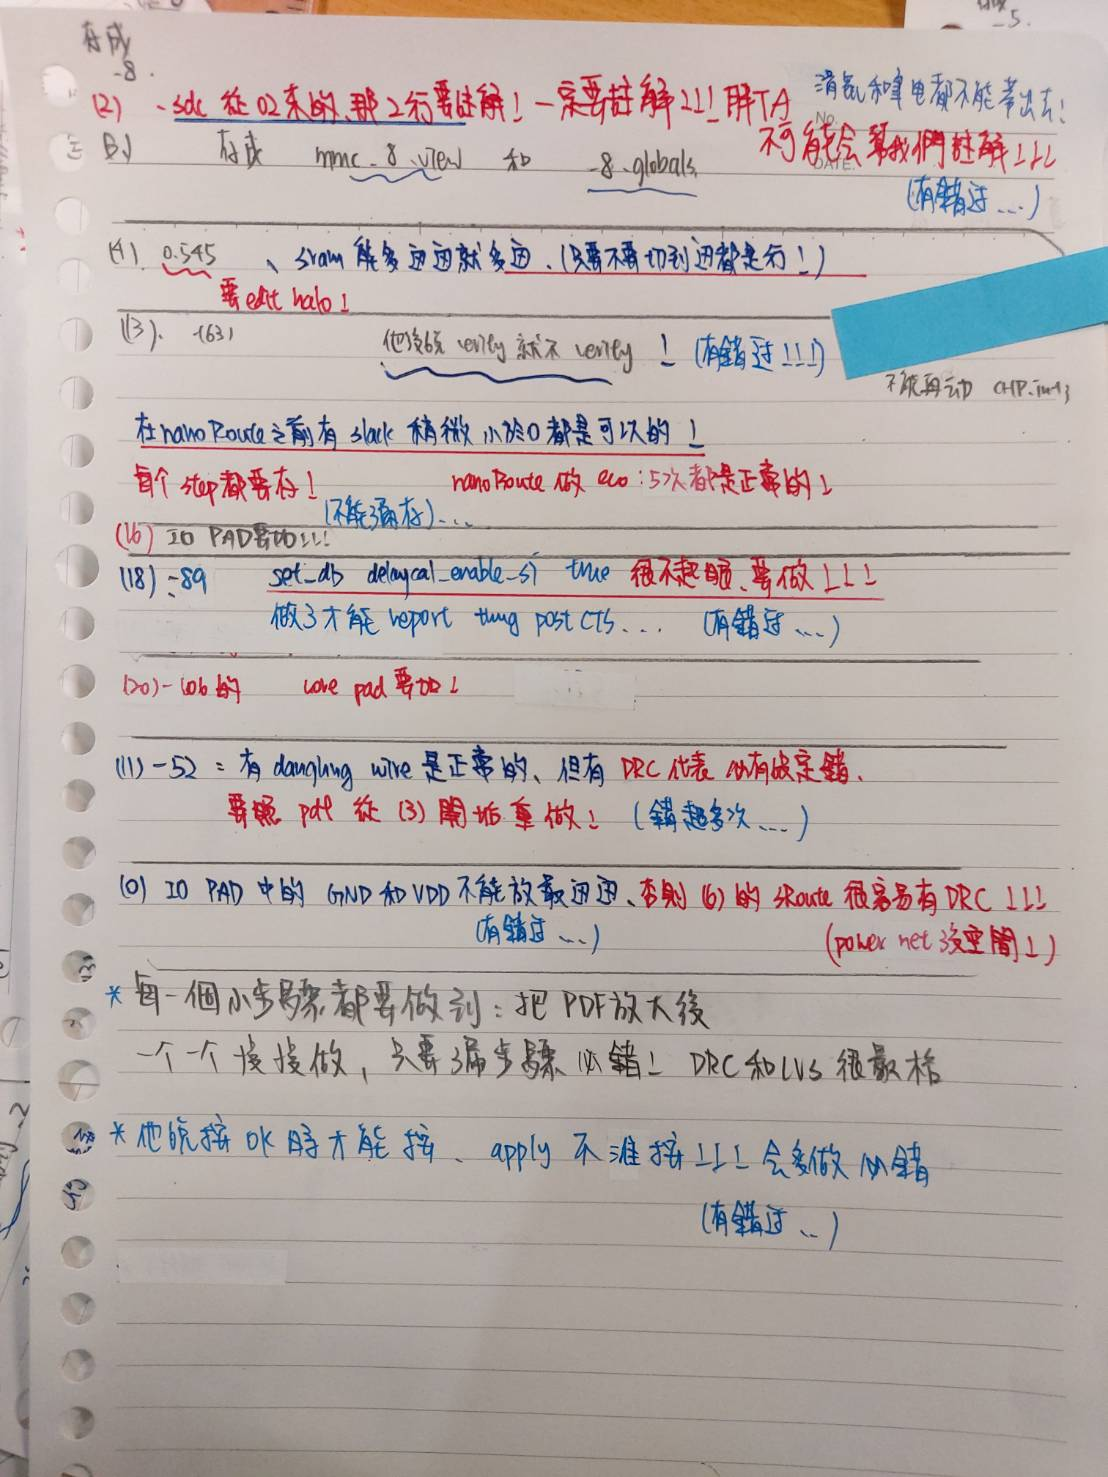 存成
-8.
-5.
(2) .sdc 從02來的,那2行要註解!一定要註解!!! TA
不可能会幫我們註解!!!
No.
DATE.
(有錯过...)
B) 存成 mmc_8.view 和 -8.globals
(4). 0.545 、sram能多边边就多边、(只要不要切到边都是行!)
要edit halo!
(13). -(63) 他沒說 verify 就不 verify ! (有錯过!!!)
不能再动 CHIP.
在nanoRoute之前有slack稍微小於0都是可以的!
每个step都要存! nanoRoute 做 eco:5次都是正常的!
(不能漏存)...
(16) IO PAD要!!!
(18) -89 set_db delaycal_enable_si true 很不起眼、要做!!!
做了才能report timg post CTS... (有錯过...)
(20)-106的 core pad要加!
(11)-52: 有dangling wire是正常的、但有DRC代表必有設定錯、
要照 pdf 從 (3) 開始重做! (錯超多次...)
(0) IO PAD 中的 GND和VDD不能放最边边、否則(6)的sRoute很容易有DRC!!!
(有錯过...) (power net沒空間!)
* 每一個小步驟都要做到:把PDF放大後
一个一个慢慢做,只要漏步驟必錯! DRC和LVS很嚴格
* 他說按OK時才能按、apply不准按!!!会多做必錯
(有錯过..)